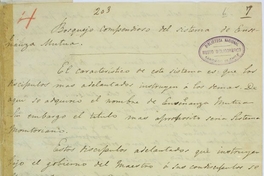 203
Bosquejo compendioso del sistema de Ense-
ñanza Mutua.
El característico de este sistema es que los
discípulos mas adelantados instruyen a los demas. De
aqui se adquiere el nombre de Enseñanza Mutua
sin embargo el titulo mas aproposito seria Sistema
Monitoriano.
Estos discípulos adelantados que instruyen
bajo el gobierno del Maestro á sus condiscipulos se